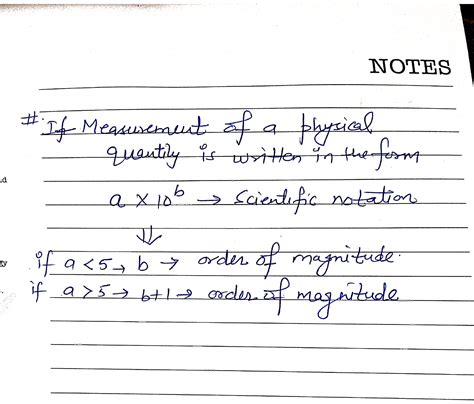 NOTES
# If Measurement of a physical
quantity is written in the form
a × 10ᵇ → Scientific notation
⇓
if a < 5 → b → order of magnitude.
if a > 5 → b+1 → order of magnitude